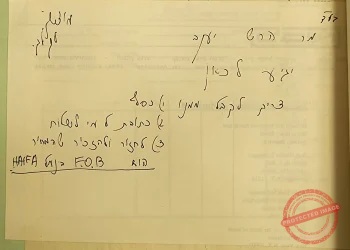 בע"ה
מר הרש יעקב
יגיע לכאן
צריך לקבל ממנו 1) כסף
2) כתובת למי לשלוח
3) לחזור ולהזכיר שהמחיר
הוא F.O.B בנמל HAIFA
PROTECTED IMAGE